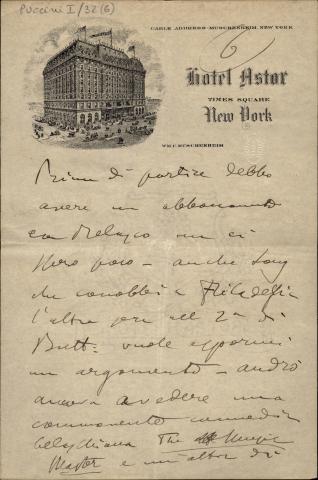 Puccini I/32(6)
CABLE ADDRESS-MUSCHENHEIM, NEW YORK
6
Hotel Astor
TIMES SQUARE
New York
WM. C. MUSCHENHEIM
Prima di partire debbo
avere un abboccamento
con Belasco ma ci
spero poco – anche Long
che conobbi a Filadelfia
l'altra sera alla 2a di
Butt: vuole espormi
un argomento – andrò
ancora a vedere una
commovente commedia
The Music
Master e un'altra di